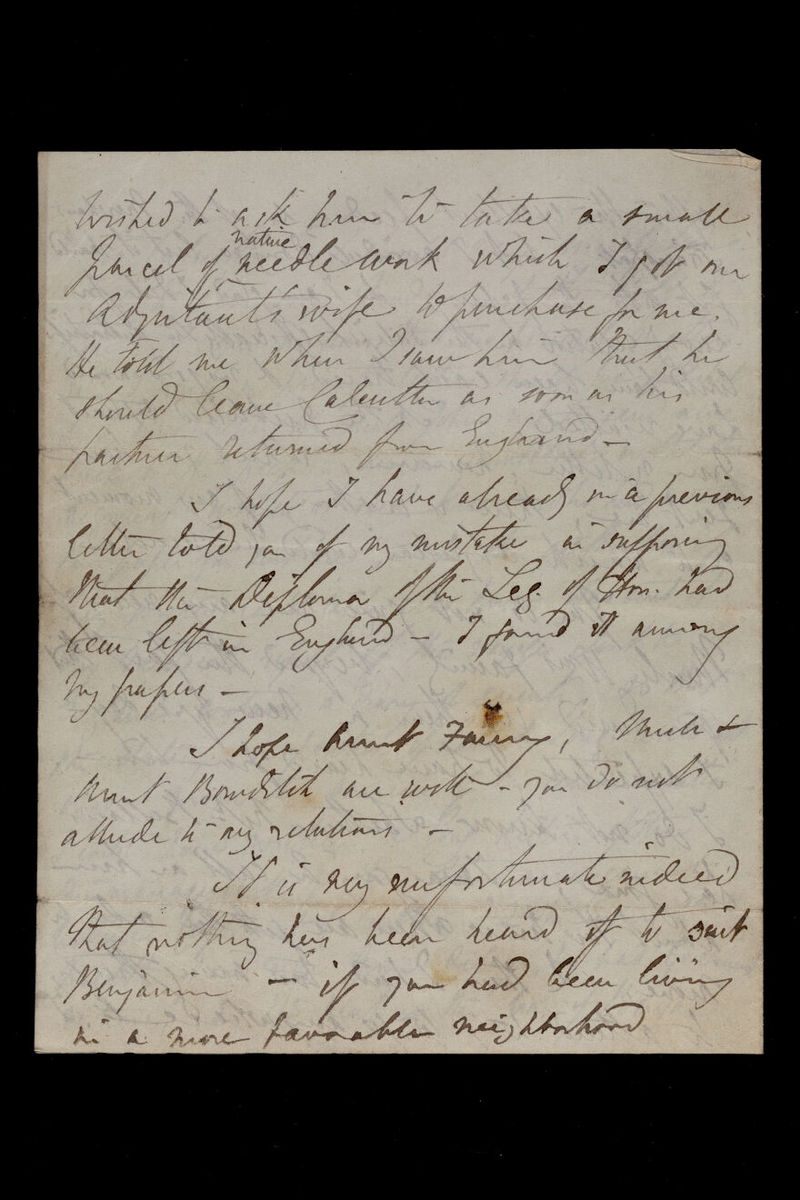 wished to ask him to take a small
parcel of native needle work which I got our
Adjutant's wife to purchase for me.
He told me when I saw him that he
should leave Calcutta as soon as his
partner returned from England —
I hope I have already in a previous
letter told you of my mistake in supposing
that the Diploma of the Leg. of Hon. had
been left in England — I found it among
my papers —
I hope Aunt Fanny, Uncle &
Aunt Bowditch are well — you do not
allude to any relations —
It is very unfortunate indeed
that nothing has been heard of to suit
Benjamin — if you had been living
in a more favorable neighborhood